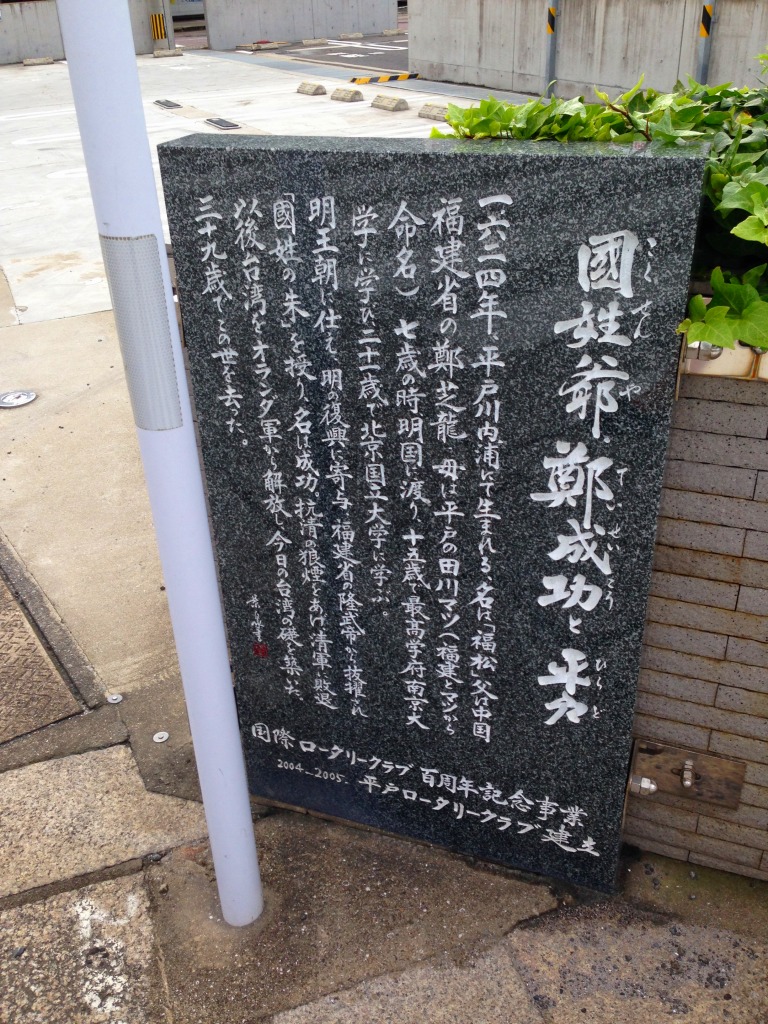 國姓爺、鄭成功と平戸
こくせんや ていせいこう ひらど
一六二四年、平戸川内浦にて生まれる、名は「福松」父は中国
福建省の鄭芝龍・母は平戸の田川マツ（福建とマツから
命名）七歳の時明国に渡り、十五歳で最高学府南京大
学に学び二十一歳で北京国立大学に学ぶ。
明王朝に仕え、明の復興に寄与、福建省の隆武帝から抜擢され
「國姓の朱」を授り、名は成功。抗清の狼煙をあげ清軍に敗退
以後台湾をオランダ軍から解放し今日の台湾の礎を築いた。
三十九歳でこの世を去った。
国際ロータリークラブ百周年記念事業
2004-2005- 平戸ロータリークラブ建立